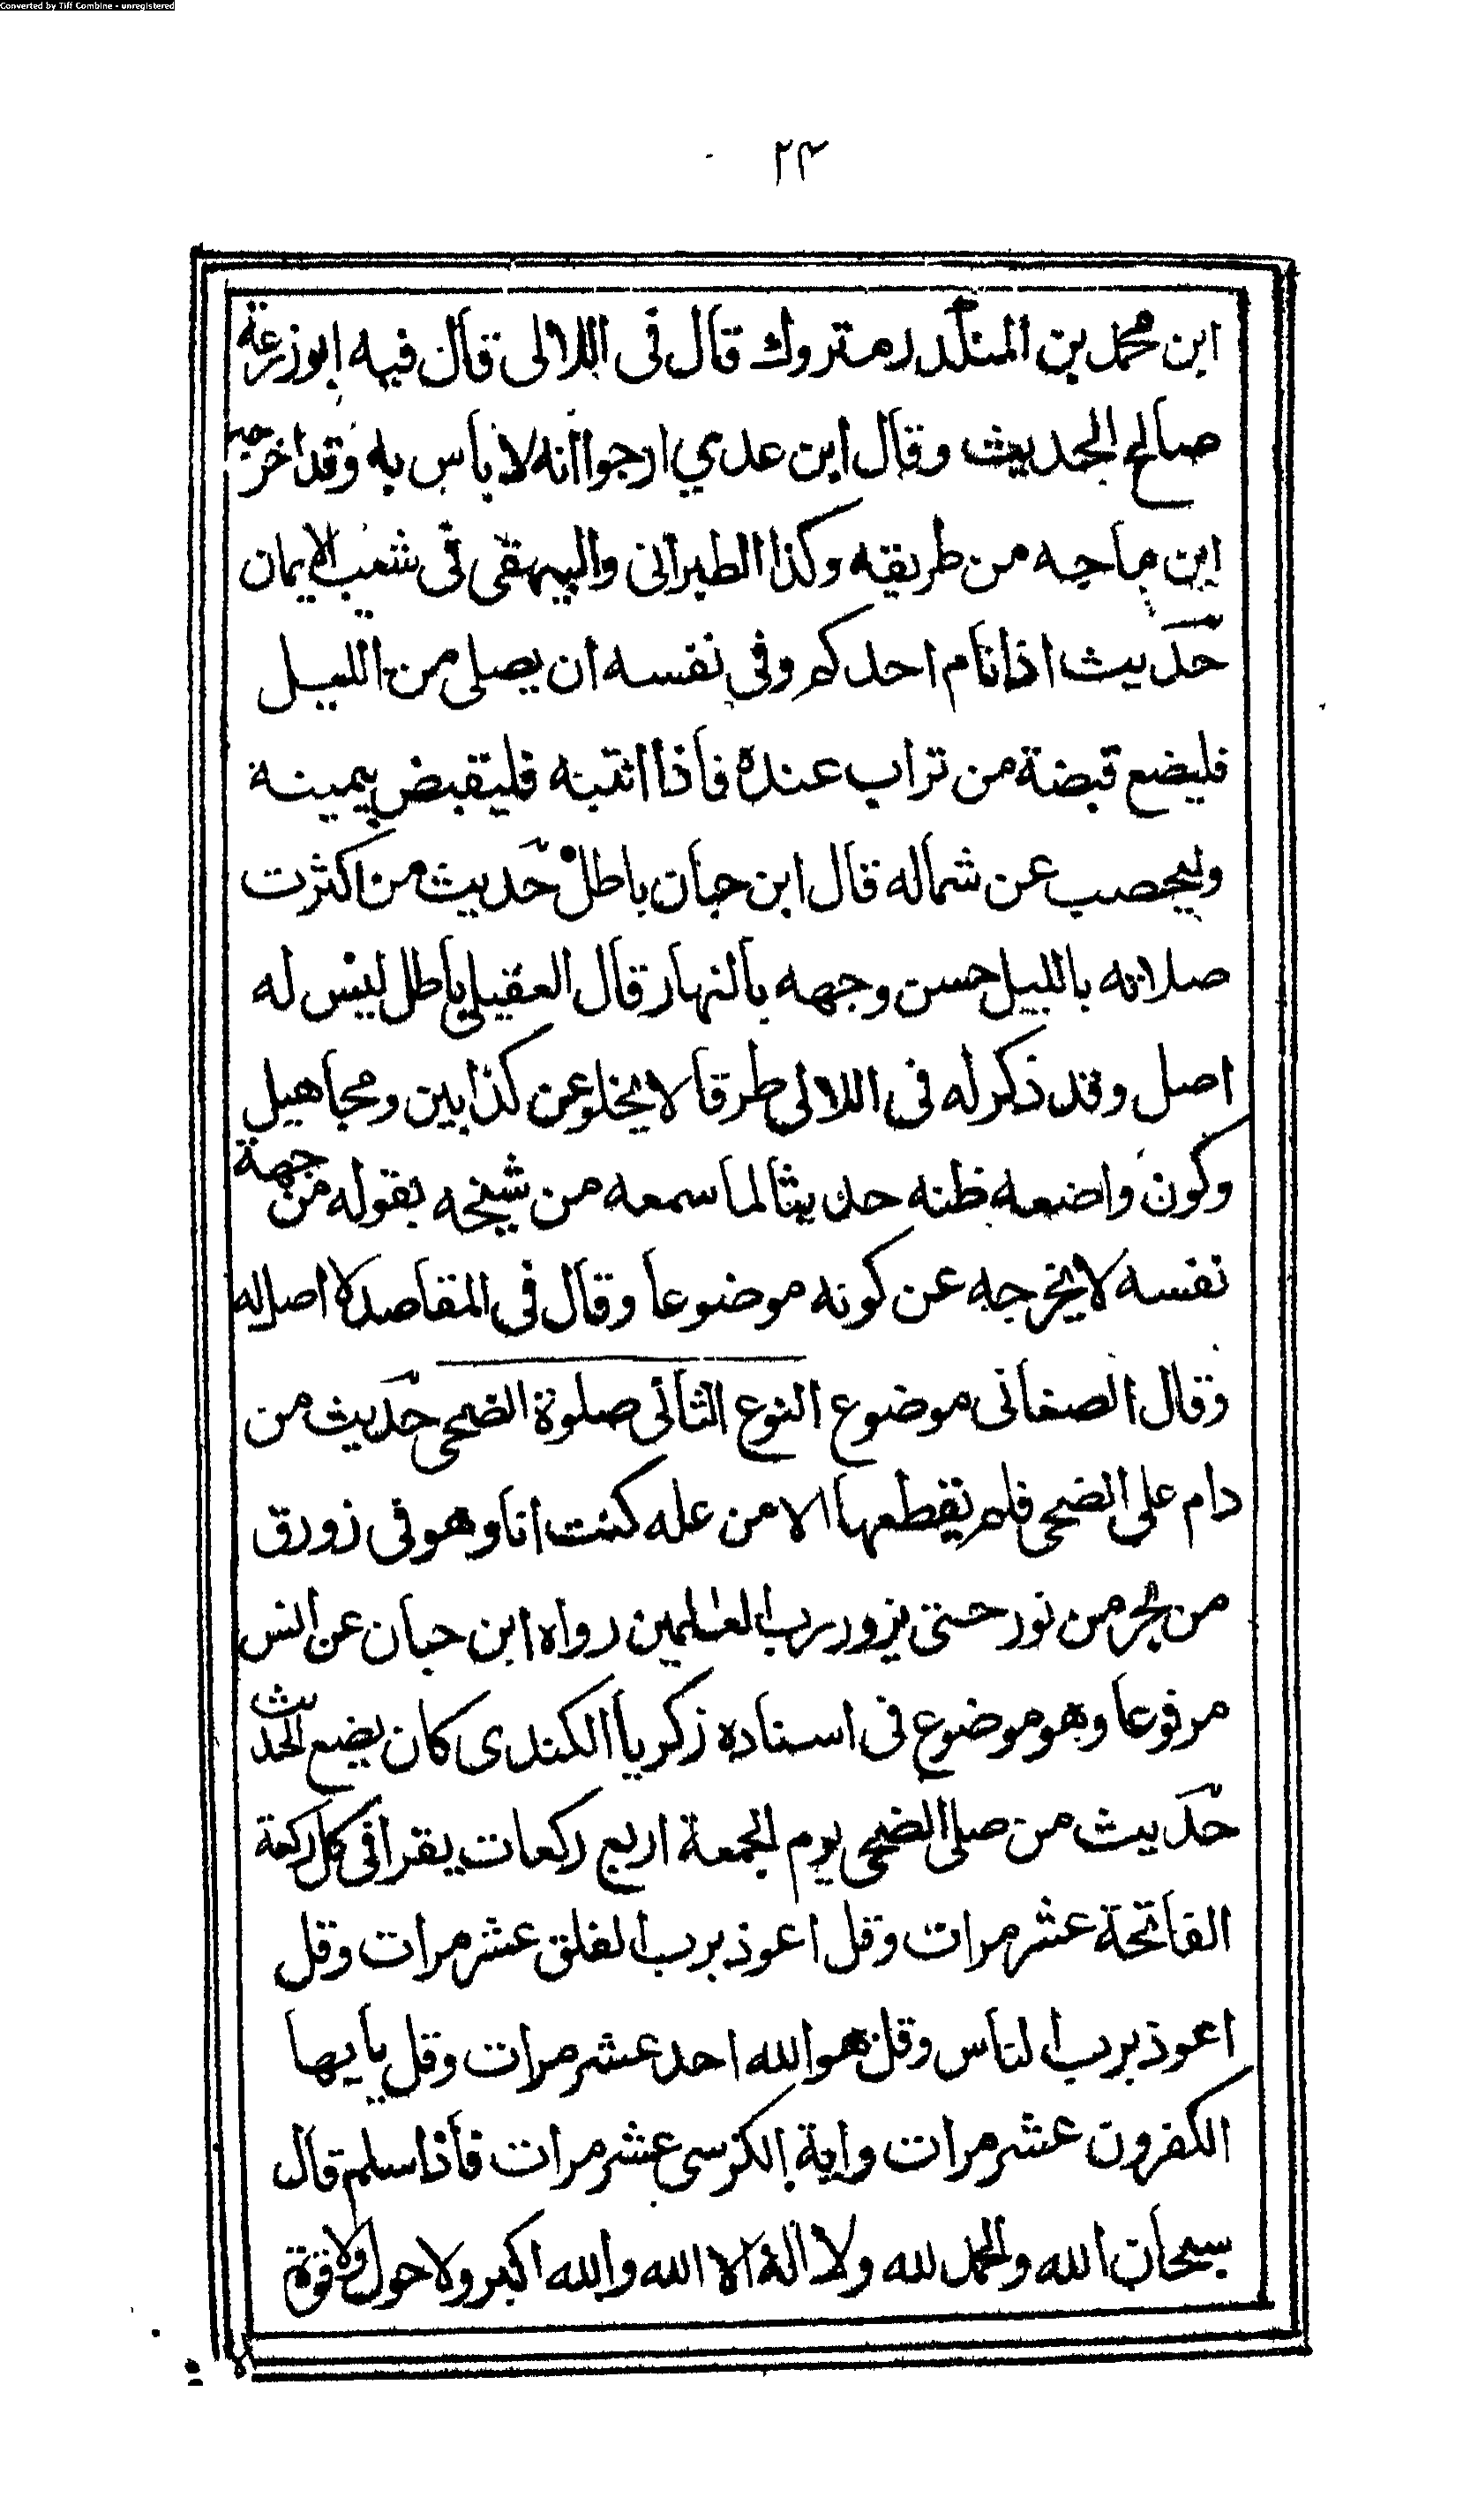 Converted by Tiff Combine - unregistered
٢٣
ابن محمد بن المنكدر متروك قال فى اللالى قال فيه ابو زرعة
صالح الحديث وقال ابن عدي ارجوا انه لا باس به وقد اخرجه
ابن ماجه من طريقه وكذا الطبرانى والبيهقى فى شعب الايمان
حديث اذا نام احدكم وفى نفسه ان يصلى من الليل
فليضع قبضة من تراب عنده فاذا انتبه فليقبض بيمينة
وليحصب عن شماله قال ابن حبان باطل حديث من اكثرت
صلاته بالليل حسن وجهه بالنهار قال العقيلى باطل ليس له
اصل وقد ذكر له فى اللالى طرقا لا يخلو عن كذابين ومجاهيل
وكون واضعه ظنه حديثا لما سمعه من شيخه بقوله من جهة
نفسه لا يخرجه عن كونه موضوعا وقال فى المقاصد لا اصل له
وقال الصغانى موضوع النوع الثانى صلوة الضحى حديث من
دام على الضحى فلم يقطعها الا من عله كنت انا وهو فى زورق
من بحر من نور حتى يزور رب العلمين رواه ابن حبان عن انس
مرفوعا وهو موضوع فى اسناده زكريا الكندى كان يضع الحديث
حديث من صلى الضحى يوم الجمعة اربع ركعات يقرا فى كل ركعة
الفاتحة عشر مرات وقل اعوذ برب الفلق عشر مرات وقل
اعوذ برب الناس وقل هو الله احد عشر مرات وقل يايها
الكفرون عشر مرات واية الكرسى عشر مرات فاذا سلم قال
سبحان الله والحمد لله ولا اله الا الله والله اكبر ولا حول ولا قوة